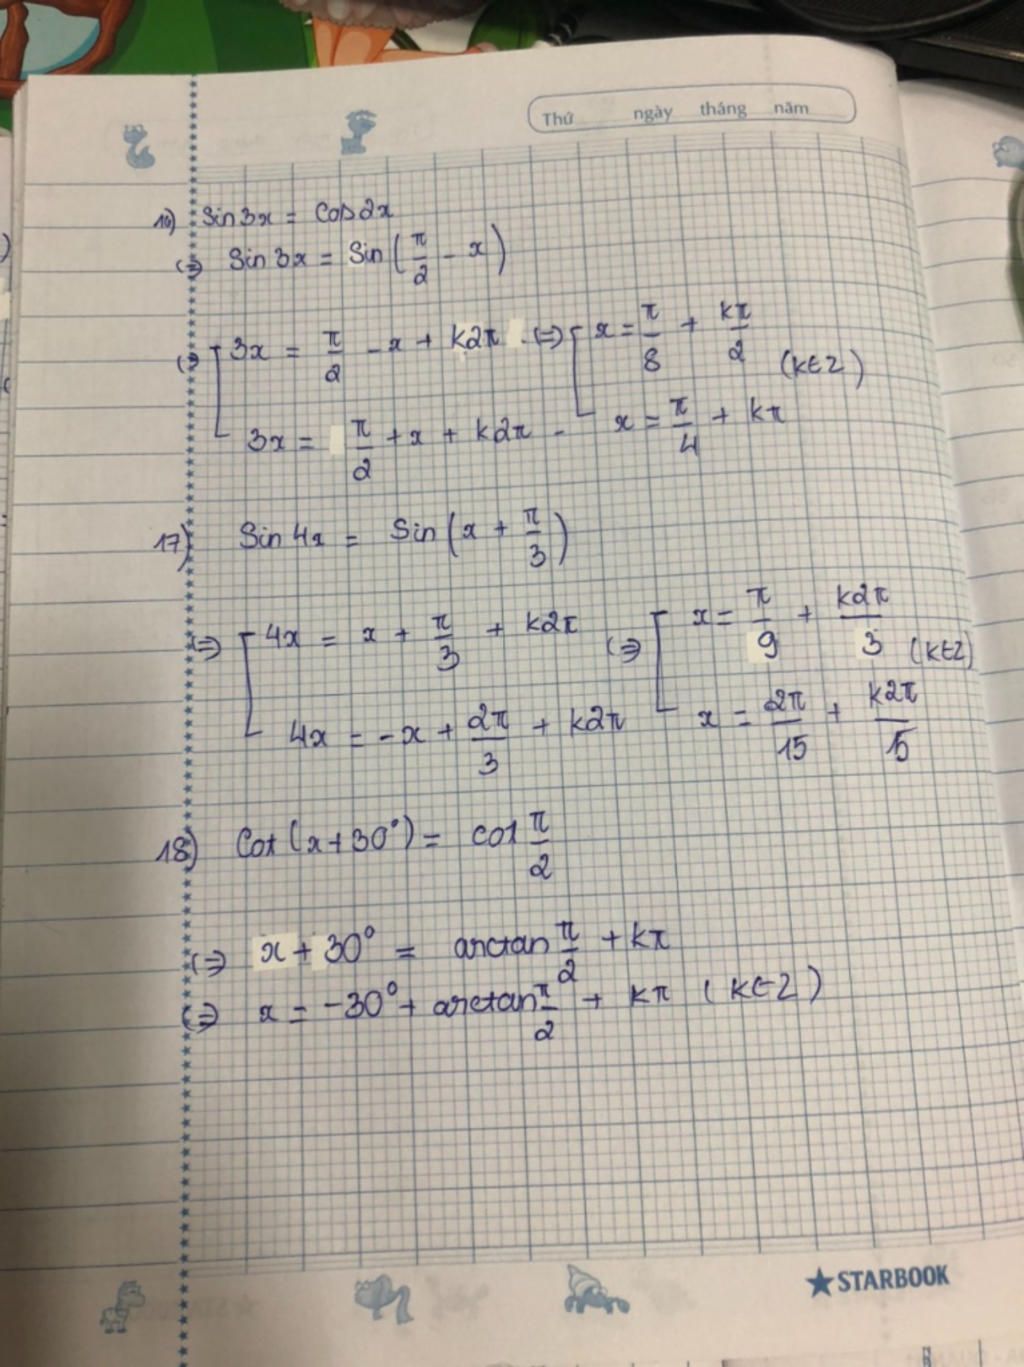 Thứ ngày tháng năm
16) Sin3x = Cos2x
(=) Sin3x = Sin(π/2 - x)
(=) [ 3x = π/2 - x + k2π (=) [ x = π/8 + kπ/2 (k∈Z)
3x = π/2 + x + k2π - x = π/4 + kπ
17) Sin 4x = Sin(x + π/3)
(=) [ 4x = x + π/3 + k2π (=) [ x = π/9 + k2π/3 (k∈Z)
4x = -x + 2π/3 + k2π x = 2π/15 + k2π/5
18) Cot(x+30°) = cot π/2
(=) x + 30° = arctan π/2 + kπ
(=) x = -30° + arctan π/2 + kπ (k∈Z)
★STARBOOK